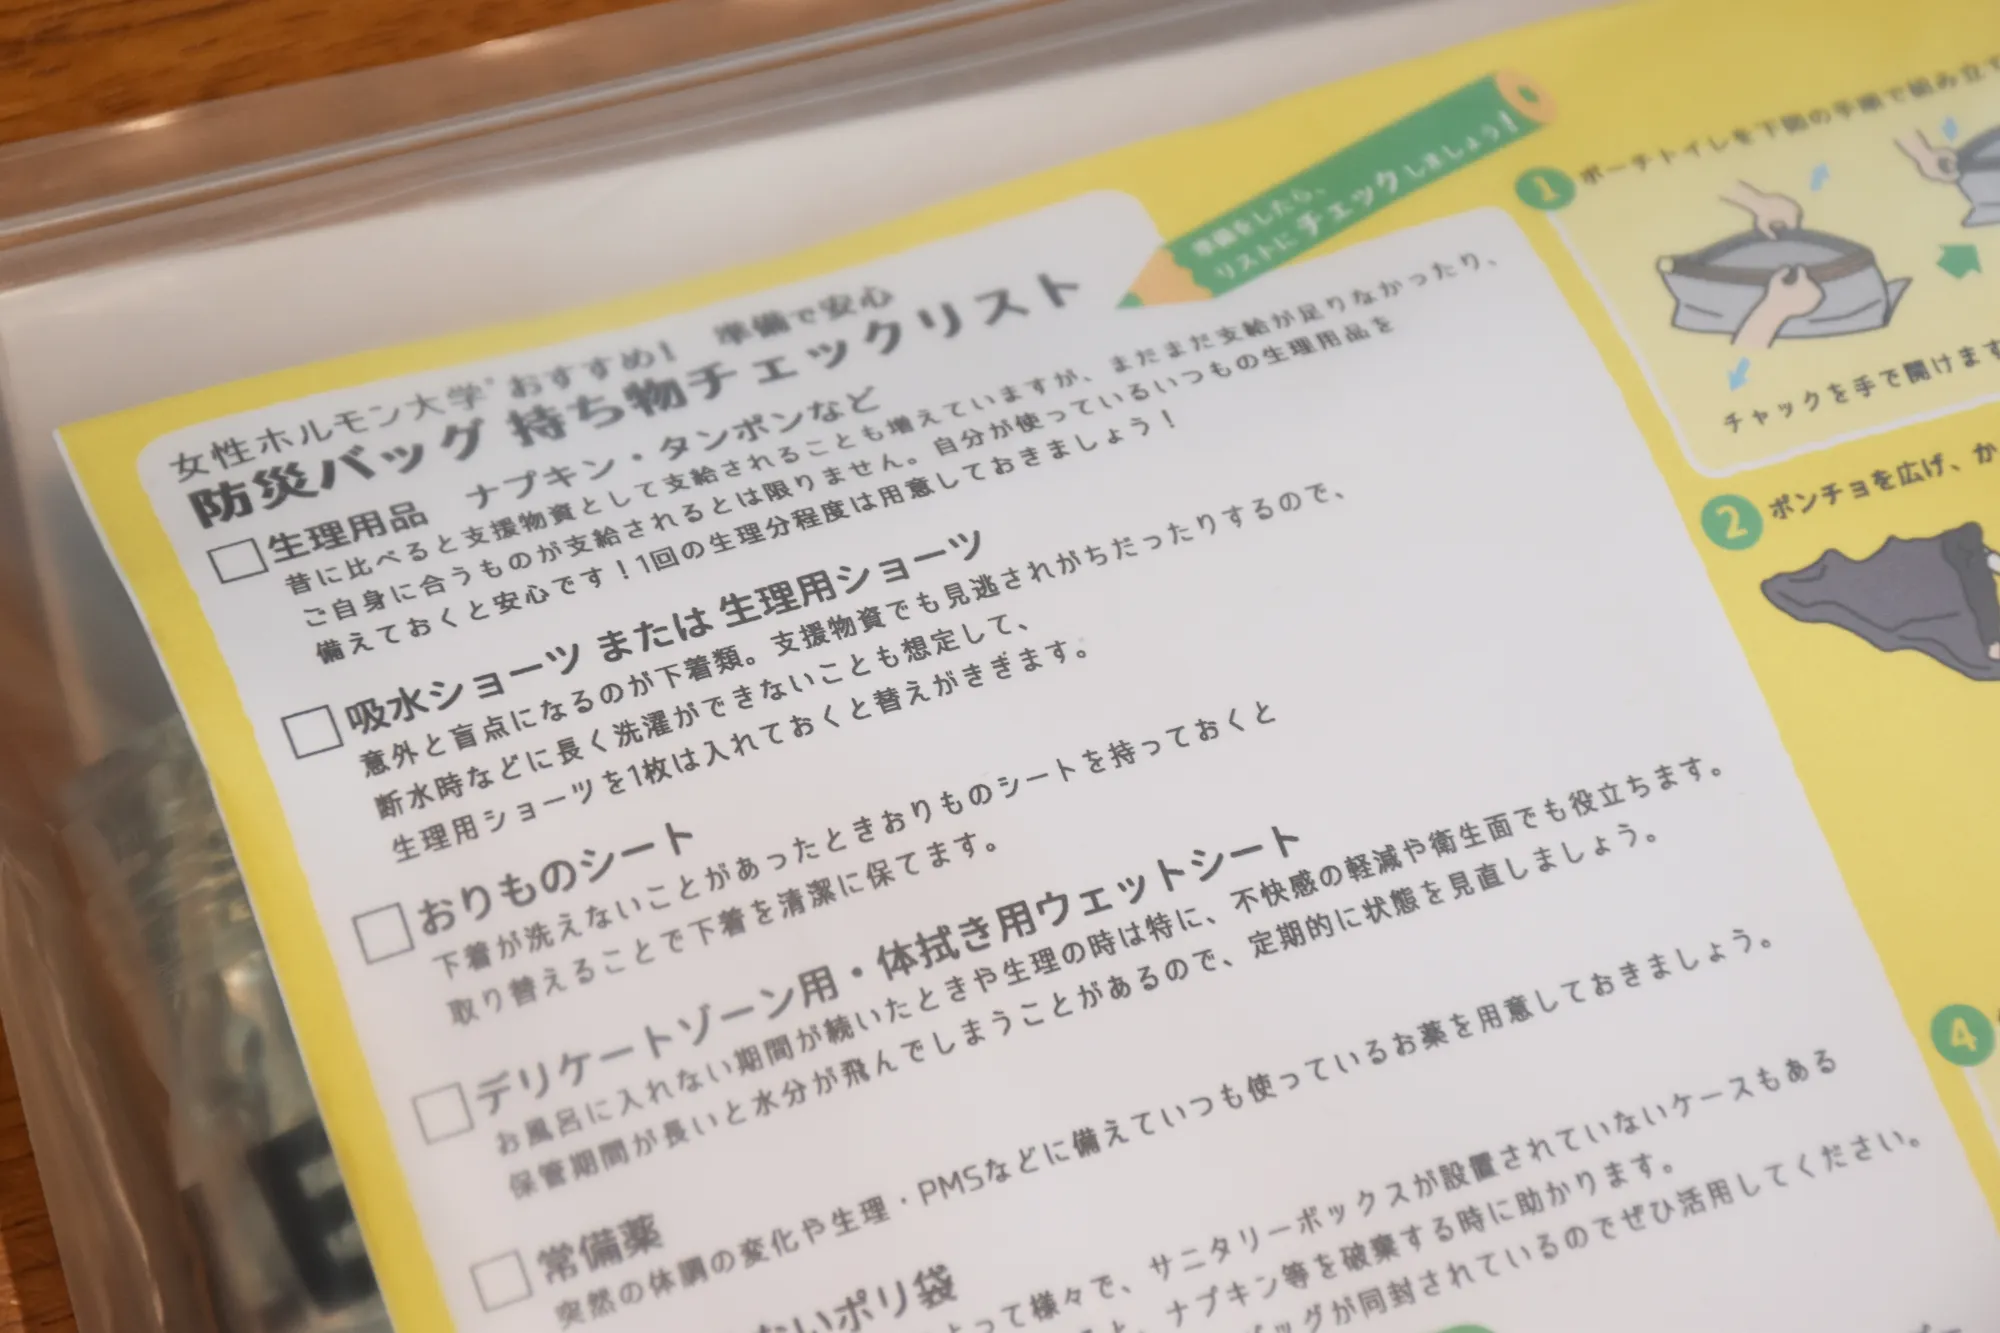 女性ホルモン大学®おすすめ！ 準備で安心
防災バッグ 持ち物チェックリスト
準備をしたら、
リストにチェックしましょう！
生理用品 ナプキン・タンポンなど
昔に比べると支援物資として支給されることも増えていますが、まだまだ支給が足りなかったり、
ご自身に合うものが支給されるとは限りません。自分が使っているいつもの生理用品を
備えておくと安心です！1回の生理分程度は用意しておきましょう！
吸水ショーツ または 生理用ショーツ
意外と盲点になるのが下着類。支援物資でも見逃されがちだったりするので、
断水時などに長く洗濯ができないことも想定して、
生理用ショーツを1枚は入れておくと替えがききます。
おりものシート
下着が洗えないことがあったときおりものシートを持っておくと
取り替えることで下着を清潔に保てます。
デリケートゾーン用・体拭き用ウェットシート
お風呂に入れない期間が続いたときや生理の時は特に、不快感の軽減や衛生面でも役立ちます。
保管期間が長いと水分が飛んでしまうことがあるので、定期的に状態を見直しましょう。
常備薬
突然の体調の変化や生理・PMSなどに備えていつも使っているお薬を用意しておきましょう。
ないポリ袋
よって様々で、サニタリーボックスが設置されていないケースもある
と、ナプキン等を破棄する時に助かります。
バッグが同封されているのでぜひ活用してください。
1 ポーチトイレを下図の手順で組み立て
チャックを手で開けます
2 ポンチョを広げ、か
4